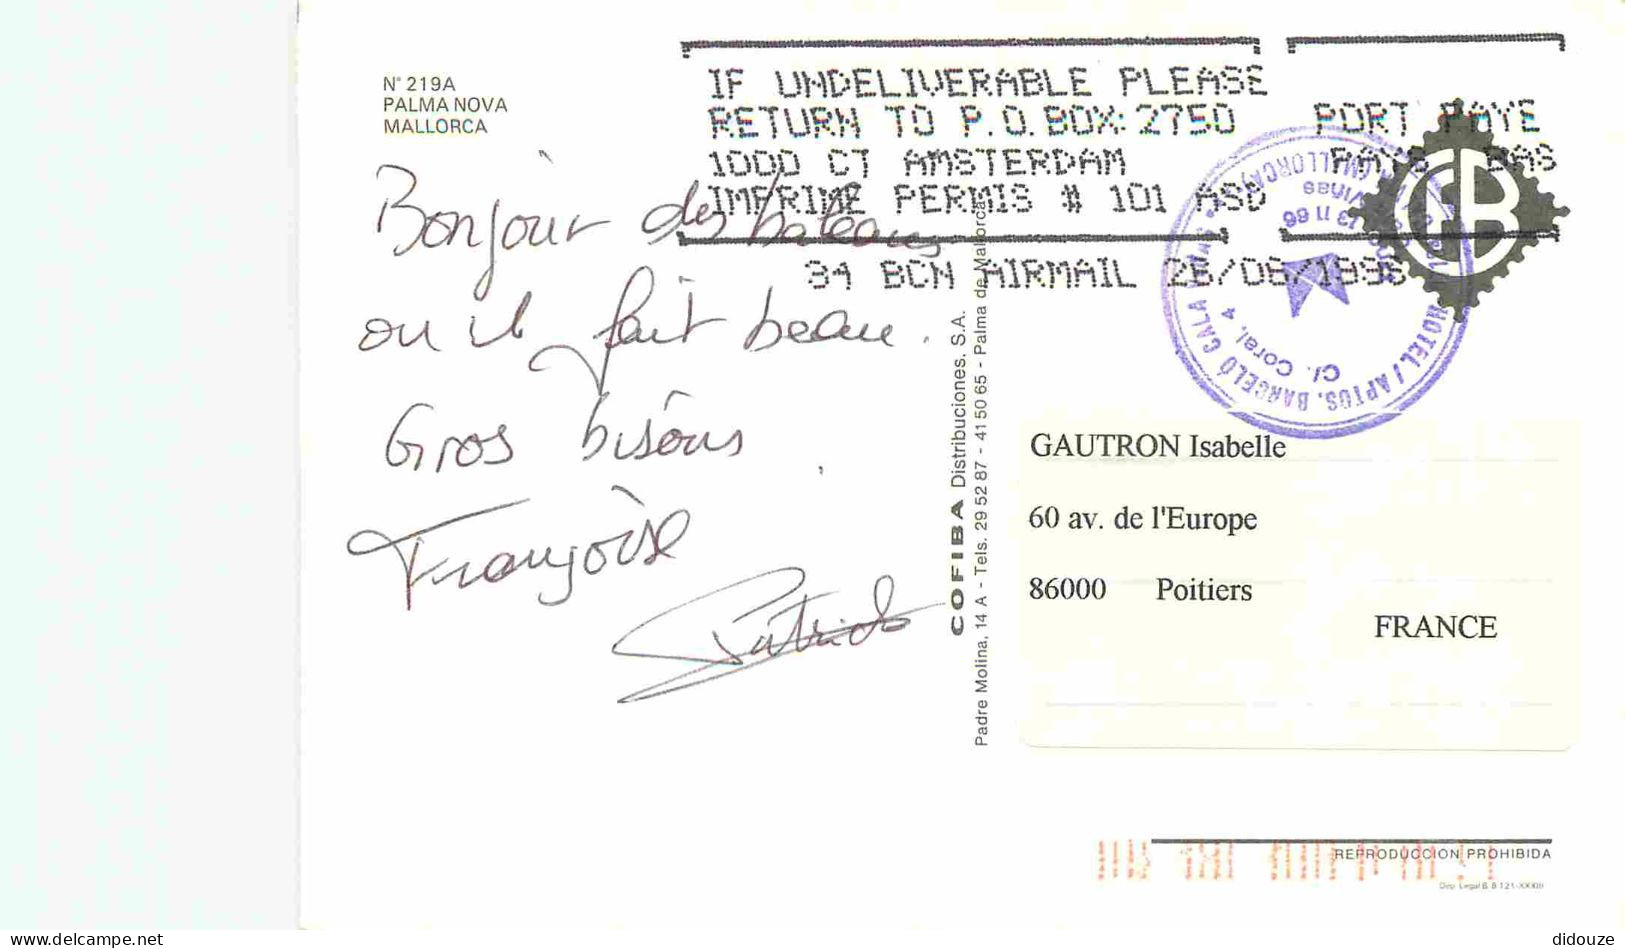 N° 219A
PALMA NOVA
MALLORCA
IF UNDELIVERABLE PLEASE
RETURN TO P.O.BOX: 2750
1000 CT AMSTERDAM
IMPRIME PERMIS # 101 ASD
PORT PAYE
PAYS BAS
94 BCN AIRMAIL 26/06/1996
Bonjour des bateaux
ou il fait beau.
Gros bisous
Françoise
Patrick
COFIBA Distribuciones, S.A.
Padre Molina, 14 A - Tels. 29 52 87 - 41 50 65 - Palma de Mallorca
HOTEL/APTOS. BARCELÓ CALA
(MALLORCA)
C/. Coral, 4
GAUTRON Isabelle
60 av. de l'Europe
86000 Poitiers
FRANCE
REPRODUCCION PROHIBIDA
didouze